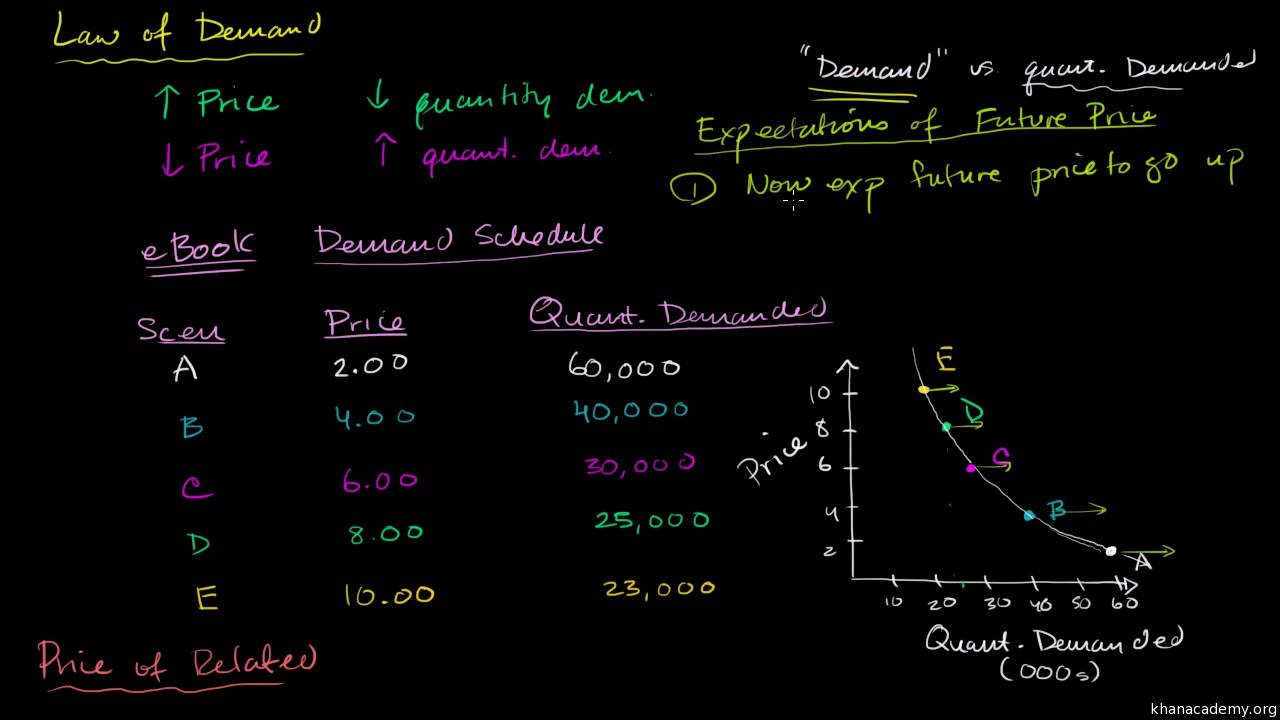 Law of Demand
↑ Price ↓ quantity dem.
↓ Price ↑ quant. dem.
"Demand" vs. quant. Demanded
Expectations of Future Price
① Now exp future price to go up
eBook Demand Schedule
Scen Price Quant. Demanded
A 2.00 60,000
B 4.00 40,000
C 6.00 30,000
D 8.00 25,000
E 10.00 23,000
Price of Related
E
D
C
B
A
Price
10
8
6
4
2
10 20 30 40 50 60
Quant. Demanded
(000s)
khanacademy.org